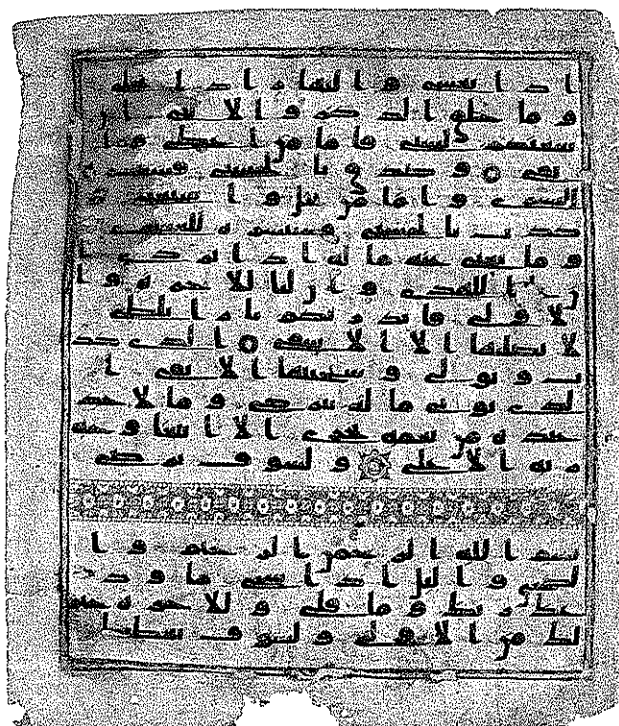 اذا يغشى والنهار اذا تجلى
وما خلق الذكر والانثى ان
سعيكم لشتى فاما من اعطى وا
تقى وصدق بالحسنى فسنيسره
لليسرى واما من بخل واستغنى و
كذب بالحسنى فسنيسره للعسرى
وما يغني عنه ماله اذا تردى ا
ن علينا للهدى وان لنا للاخرة وا
لاولى فانذرتكم نارا تلظى
لا يصليها الا الاشقى الذي كذ
ب وتولى وسيجنبها الاتقى ا
لذي يؤتي ماله يتزكى وما لاحد
عنده من نعمة تجزى الا ابتغا وجه
ربه الاعلى ولسوف يرضى
بسم الله الرحمن الرحيم وا
لضحى والليل اذا سجى ما ود
عك ربك وما قلى وللاخرة خير
لك من الاولى ولسوف يعطيك